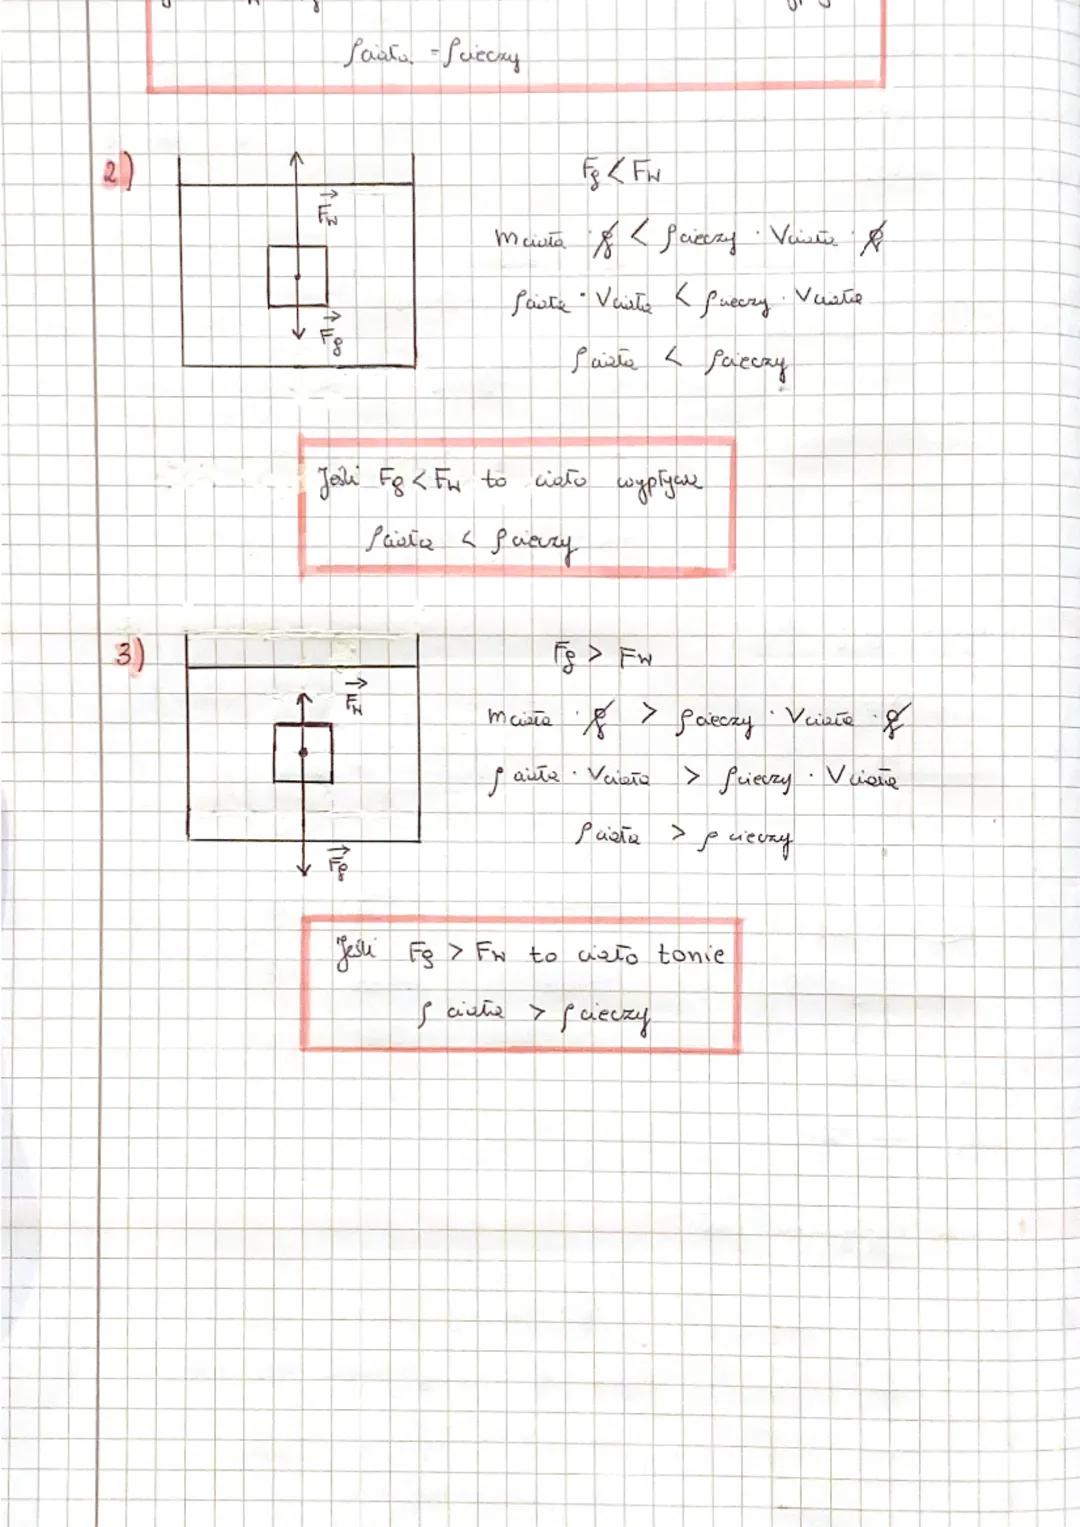 ρciała = ρcieczy
2)
Fg < Fw
Fw
mciała · g < ρcieczy · Vciała · g
ρciała · Vciała < ρcieczy · Vciała
Fg
ρciała < ρcieczy
Jeśli Fg < Fw to ciało wypływa
ρciała < ρcieczy
3)
Fg > Fw
Fw
mciała · g > ρcieczy · Vciała · g
ρciała · Vciała > ρcieczy · Vciała
ρciała > ρcieczy
Fg
Jeśli Fg > Fw to ciało tonie
ρciała > ρcieczy